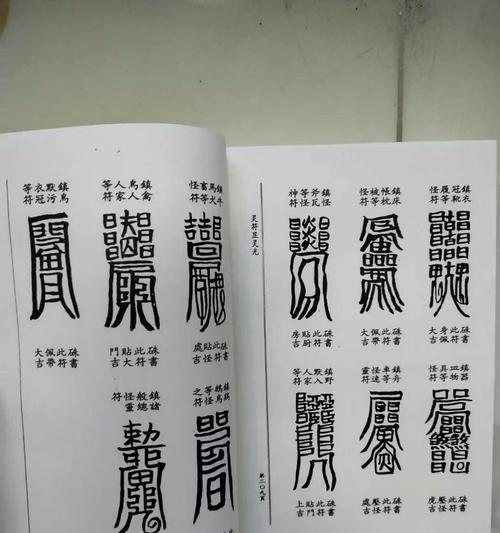 鎮衣
冠靴
履等
怪符
硃書
此符
身佩
大吉
鎮床
帳枕
被等
怪符
硃書
此符
佩帶
大吉
鎮怪
斧瓦
等怪
神符
硃書
此符
貼厨
房吉
鎮器
皿物
具等
怪符
硃書
此符
壓怪
虎吉
鎮舟
車等
怪達
靈符
硃書
此符
壓怪
處吉
鎮野
獸入
人家
等符
硃書
此符
貼門
上吉
灵符至灵光
第二〇九頁
鎮牛
馬火
畜等
怪符
硃書
此符
貼怪
處吉
鎮禽
鳥人
人家
等符
硃書
此符
貼大
門吉
鎮鳥
獸污
衣冠
等符
硃書
此符
佩帶
大吉
等怪
之符
鎮諸
般總
怪靈
符